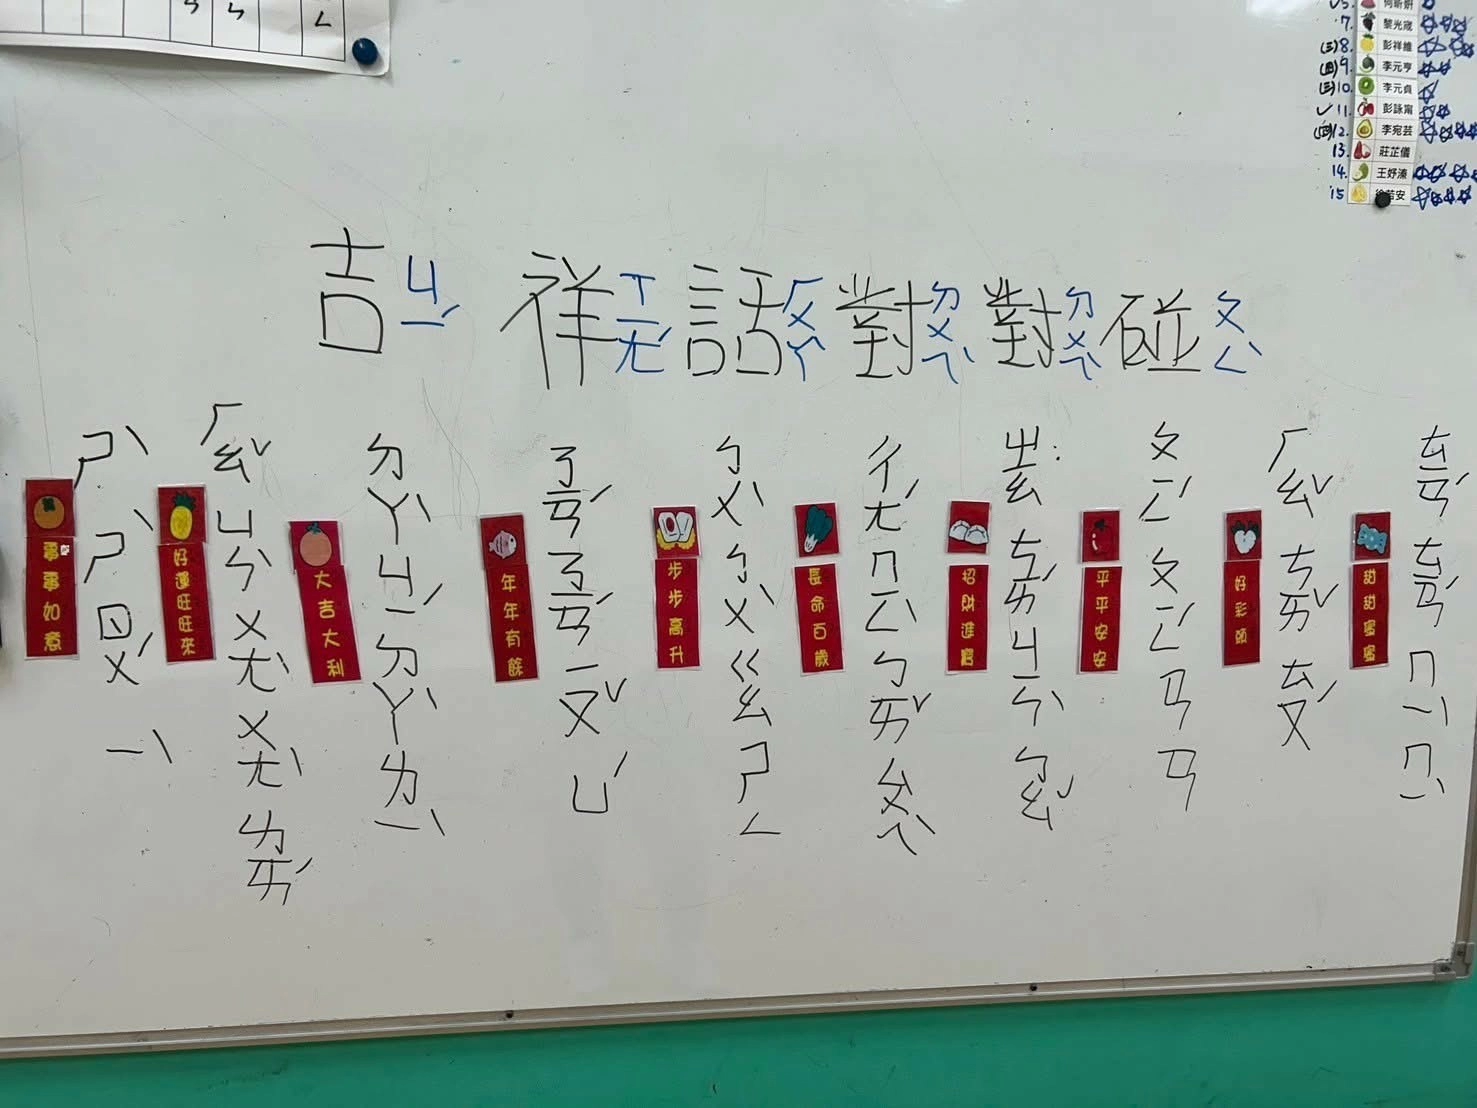 ㄣ
ㄣ
ㄥ
7. 黎光宬
(三)8. 彭祥維
(四)9. 李元亨
(三)10. 李元貞
✓11. 彭詠甯
(四)12. 李宛芸
13. 莊芷儀
14. 王妤溱
15
吉ㄐㄧˊ 祥ㄒㄧㄤˊ 話ㄏㄨㄚˋ 對ㄉㄨㄟˋ 對ㄉㄨㄟˋ 碰ㄆㄥˋ
事事如意
ㄕˋ ㄕˋ ㄖㄨˊ ㄧˋ
好運旺旺來
ㄏㄠˇ ㄩㄣˋ ㄨㄤˋ ㄨㄤˋ ㄌㄞˊ
大吉大利
ㄉㄚˋ ㄐㄧˊ ㄉㄚˋ ㄌㄧˋ
年年有餘
ㄋㄧㄢˊ ㄋㄧㄢˊ ㄧㄡˇ ㄩˊ
步步高升
ㄅㄨˋ ㄅㄨˋ ㄍㄠ ㄕㄥ
長命百歲
ㄔㄤˊ ㄇㄧㄥˋ ㄅㄞˇ ㄙㄨㄟˋ
招財進寶
ㄓㄠ ㄘㄞˊ ㄐㄧㄣˋ ㄅㄠˇ
平平安安
ㄆㄧㄥˊ ㄆㄧㄥˊ ㄢ ㄢ
好彩頭
ㄏㄠˇ ㄘㄞˇ ㄊㄡˊ
甜甜蜜蜜
ㄊㄧㄢˊ ㄊㄧㄢˊ ㄇㄧˋ ㄇㄧˋ